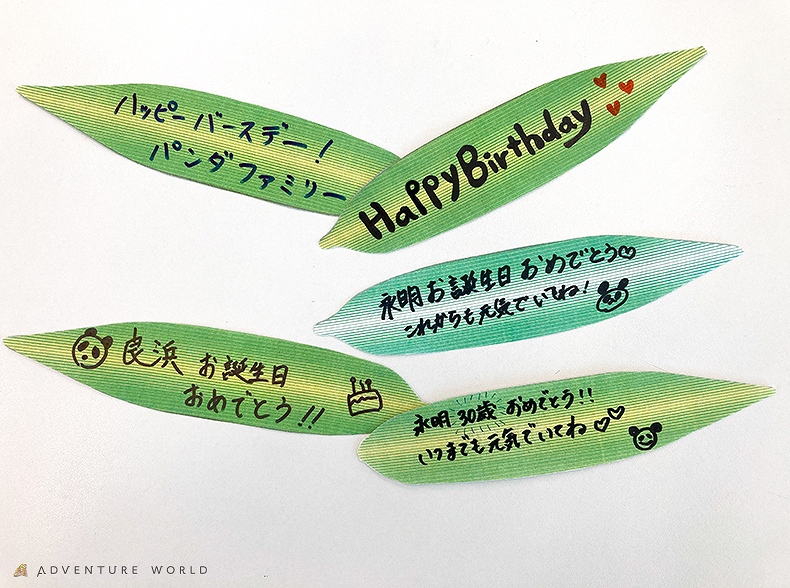 ハッピーバースデー!
パンダファミリー
HappyBirthday
永明お誕生日おめでとう
これからも元気でいてね!
良浜 お誕生日
おめでとう!!
永明 30歳 おめでとう!!
いつまでも元気でいてね
ADVENTURE WORLD